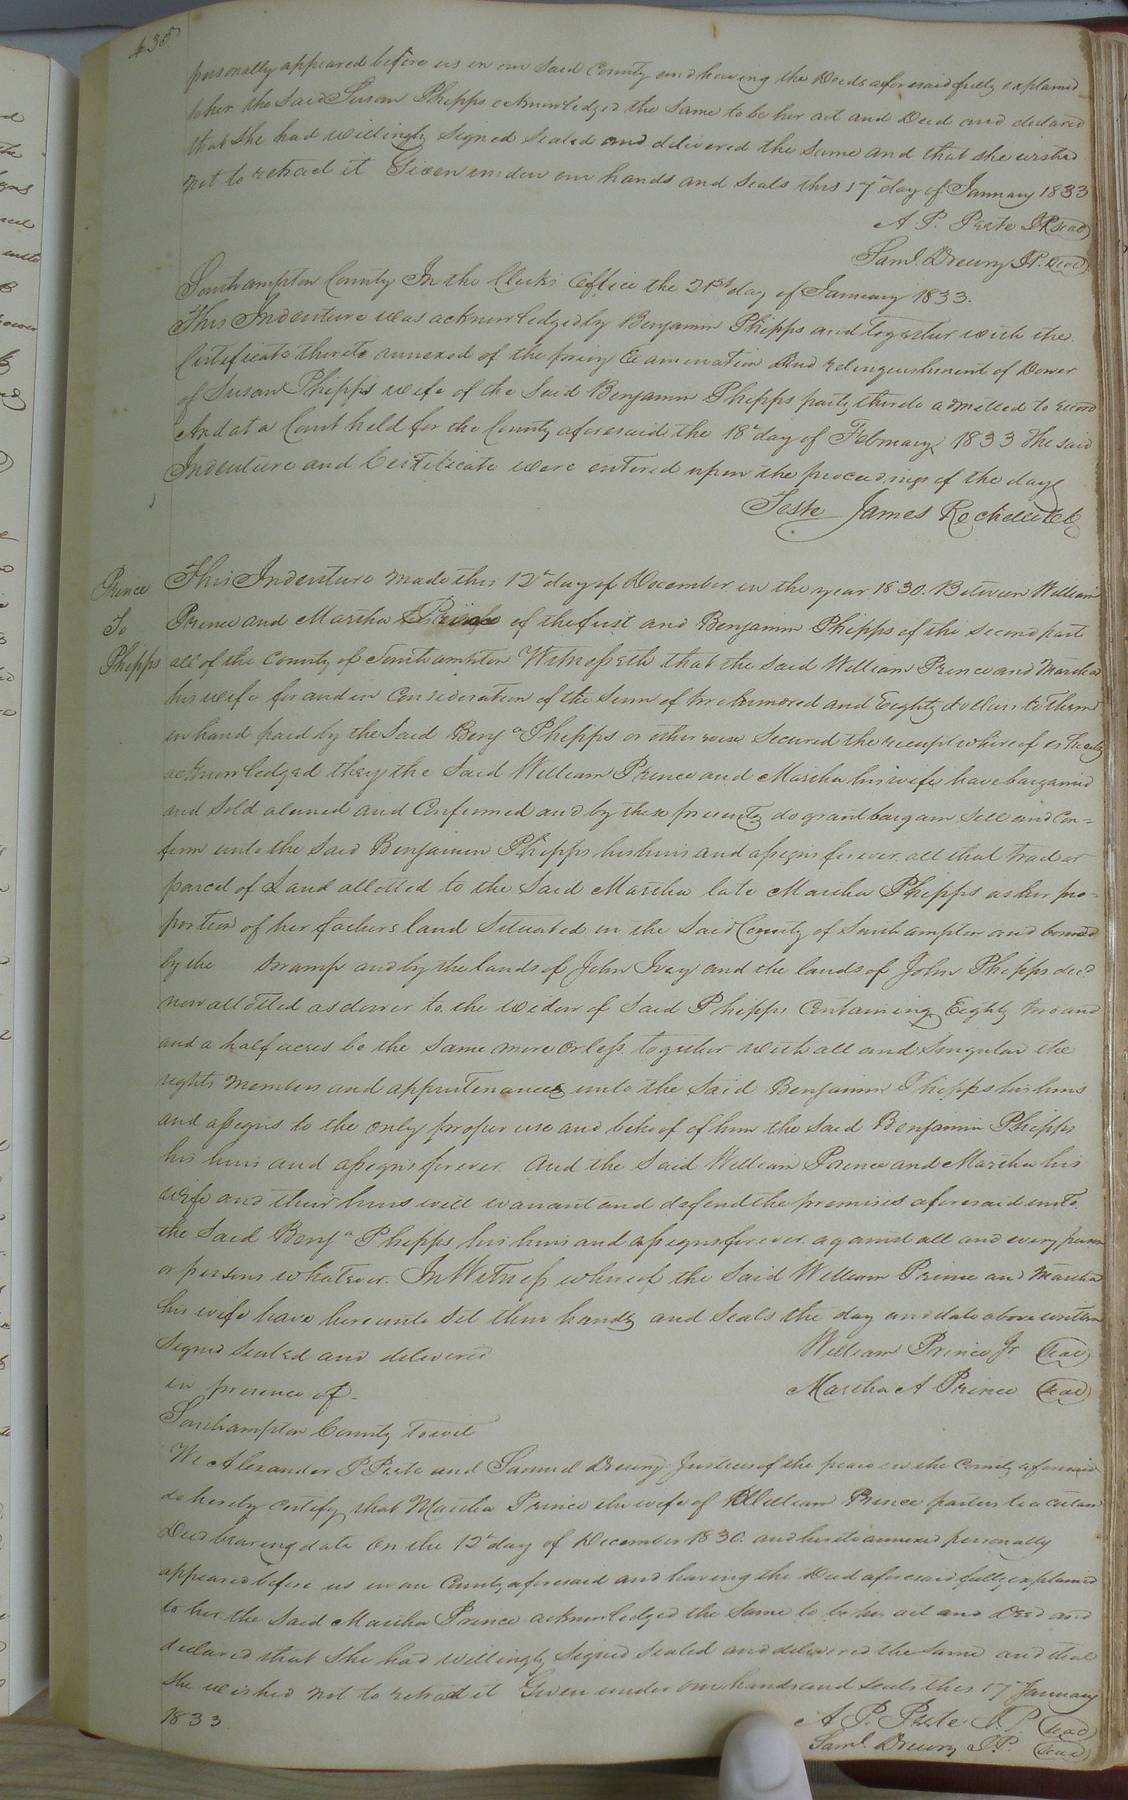 438
personally appeared before us in our Said County and having the Deeds aforesaid fully explained
to her the Said Susan Phipps acknowledged the Same to be her act and Deed and declared
that She had willingly Signed Sealed and delivered the Same and that she wished
not to retract it Given under our hands and Seals this 17th day of January 1833
A. P. Peete J.P. (Seal)
Saml. Drewry J.P. (Seal)
Southampton County In the Clerks Office the 21st day of January 1833.
This Indenture was acknowledged by Benjamin Phipps and together with the
Certificate thereto annexed of the privy Examination and relinquishment of Dower
of Susan Phipps wife of the Said Benjamin Phipps party thereto admitted to record
And at a Court held for the County aforesaid the 18th day of February 1833 The said
Indenture and Certificate were entered upon the proceedings of the day
Teste James Rochelle Clk
Prince
To
Phipps
This Indenture made this 12th day of December in the year 1830. Between William
Prince and Martha Prince of the first and Benjamin Phipps of the Second part
all of the County of Southampton Witnesseth that the Said William Prince and Martha
his wife for and in Consideration of the Sum of two hundred and Eighty dollars to them
in hand paid by the Said Benja Phipps or otherwise Secured the receipt whereof is thereby
acknowledged they the Said William Prince and Martha his wife have bargained
and Sold aliened and Confirmed and by these presents do grant bargain Sell and Con=
firm unto the Said Benjamin Phipps his heirs and assigns forever all that tract or
parcel of Land allotted to the Said Martha late Martha Phipps as her pro=
portion of her fathers land Situated in the Said County of Southampton and bound
by the Swamp and by the lands of John Ivey and the lands of John Phipps decd
now allotted as dower to the widow of Said Phipps Containing Eighty two and
and a half acres be the Same more or less together with all and Singular the
rights members and appurtenances unto the Said Benjamin Phipps his heirs
and assigns to the only proper use and behoof of him the Said Benjamin Phipps
his heirs and assigns forever. And the Said William Prince and Martha his
wife and their heirs will warrant and defend the premises aforesaid unto
the Said Benja Phipps his heirs and assigns forever against all and every person
or persons whatever. In Witness whereof the Said William Prince and Martha
his wife have hereunto Set their hands and Seals the day and date above written
Signed Sealed and delivered William Prince Jr (Seal)
in presence of- Martha A Prince (Seal)
Southampton County Towit
We Alexander P Peete and Samuel Drewry Justices of the peace in the County aforesaid
do hereby certify that Martha Prince the wife of William Prince parties to a certain
Deed bearing date on the 12th day of December 1830. and hereto annexed personally
appeared before us in our County aforesaid and having the Deed aforesaid fully explained
to her the Said Martha Prince acknowledged the Same to be her act and Deed and
declared that She had willingly Signed Sealed and delivered the Same and that
She wished not to retract it Given under our hands and Seals this 17 January
1833. A. P. Peete J.P. (Seal)
Saml. Drewry J.P. (Seal)